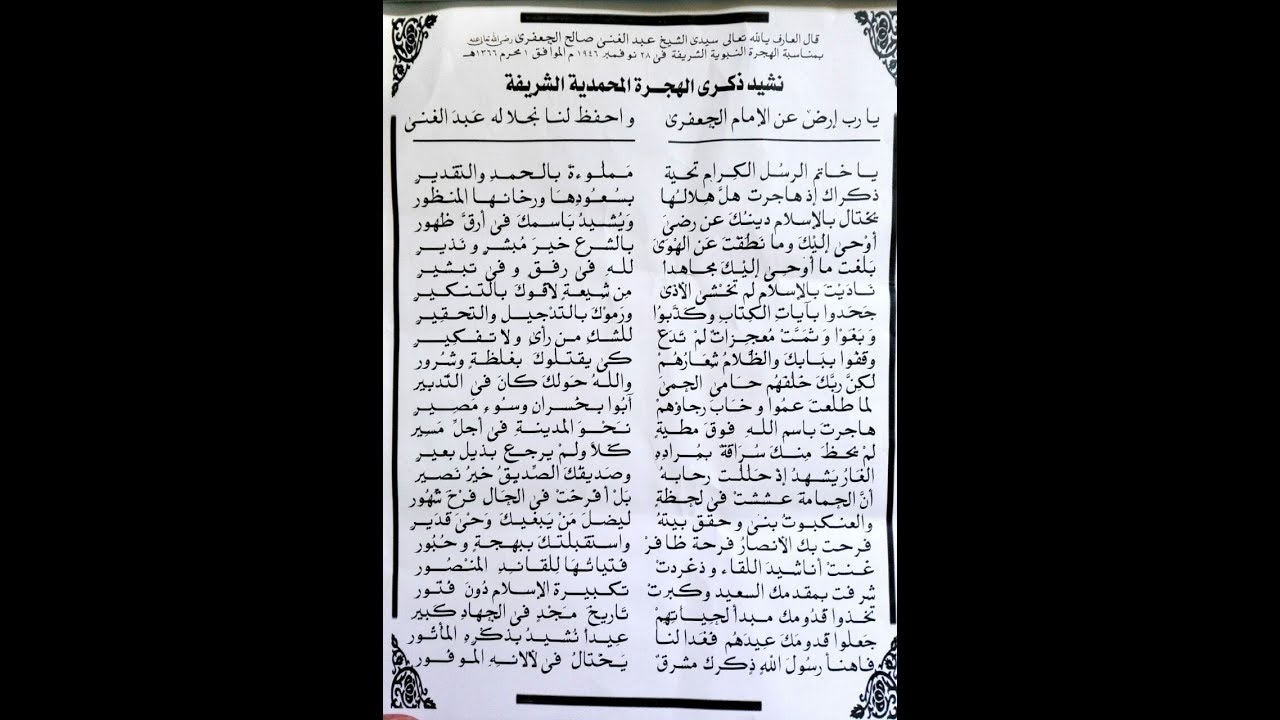 قال العارف بالله تعالى سيدى الشيخ عبد الغنى صالح الجعفرى رضى الله تعالى عنه
بمناسبة الهجرة النبوية الشريفة فى ٢٨ نوفمبر ١٩٤٦ م الموافق ١ محرم ١٣٦٦هـ
نشيد ذكرى الهجرة المحمدية الشريفة
يا رب إرض عن الإمام الجعفرى واحفظ لنا نجلا له عبدَ الغنى
يا خاتم الرسُل الكِرام تحية مَملوءةً بالحمدِ والتقديرِ
ذكراك إذ هاجرت هلَّ هِلالُها بسُعُودِهَا ورخائها المنظور
يختال بالإسلام دينُكَ عن رضىَ وَيُشيدُ بَاسمكَ فى أرقَّ ظهور
أوْحى إليْكَ وما نَطَقتَ عن الهَوَىَ بالشرع خيرَ مُبشرٍ ونذيرِ
بَلغت ما أوحى إليْكَ مجاهدا للهِ فى رفقٍ وفى تبشيرِ
نَاديْتَ بالإسلام لم تخْشى الأذى مِن شيعةٍ لاقوكَ بالتنكيرِ
جَحَدوا بآياتِ الكِتابِ وكذَّبوُا ورَموْكَ بالتدْجيل والتحقيرِ
وبَغَوْا وثمَتْ مُعجِزاتٌ لمْ تدَع للشكِ من رأى ولا تفكيرِ
وقفوا ببَابكَ والظَّلامُ شعَارُهُمْ كى يقتلوكَ بغلظةٍ وشُرورِ
لكِنَّ ربَّكَ خلفهُم حَامى الحِمىَ واللهُ حَولكَ كانَ فى التدبير
لما طلعتَ عمُوا وخَابَ رجاؤهمْ آبُوا بخسرانٍ وسُوءِ مَصيرِ
هاجرتَ باسم اللهِ فوقَ مطيةٍ نَحْوَ المدينةِ فى أجلِّ مَسِيرِ
لمْ يحظَ مِنكَ سُرَاقةٌ بمُرادِهِ كلاَ ولمْ يرجع بذيل بعيرِ
الغارُ يَشهدُ إذ حَللت رحابهُ وصَديقكَ الصِّديقُ خيرُ نصيرِ
أنَّ الحمامة عششتْ فى لحظةٍ بَلْ أفرختْ فى الحال فرْخَ شهُورِ
والعنكبوتُ بنى وحقق بيتهُ ليضلَ مَنْ يَبغيكَ وَحْىُ قديرِ
فرحت بك الأنصارُ فرحة ظافرْ واستقبلتكَ ببهجةٍ وحُبُورِ
غنتْ أناشيدَ اللقاءِ وذغردتْ فتياتُهَا لِلقائدِ المنْصُورِ
شرفت بمقدمك السعيد وكبرتْ تكبيرة الإسلام دُونَ فتُور
تخذوا قدُومك مبدأ لحِياتِهِمْ تاريخَ مَجْدٍ فى الجِهادِ كبير
جَعلوا قدومَكَ عِيدَهُم فغدا لنا عيداً نُشيدُ بذكْرِهِ المأثور
فاهنأ رسُولَ اللهِ ذِكركَ مشرقٌ يَختالُ فى لآلائهِ الموفور